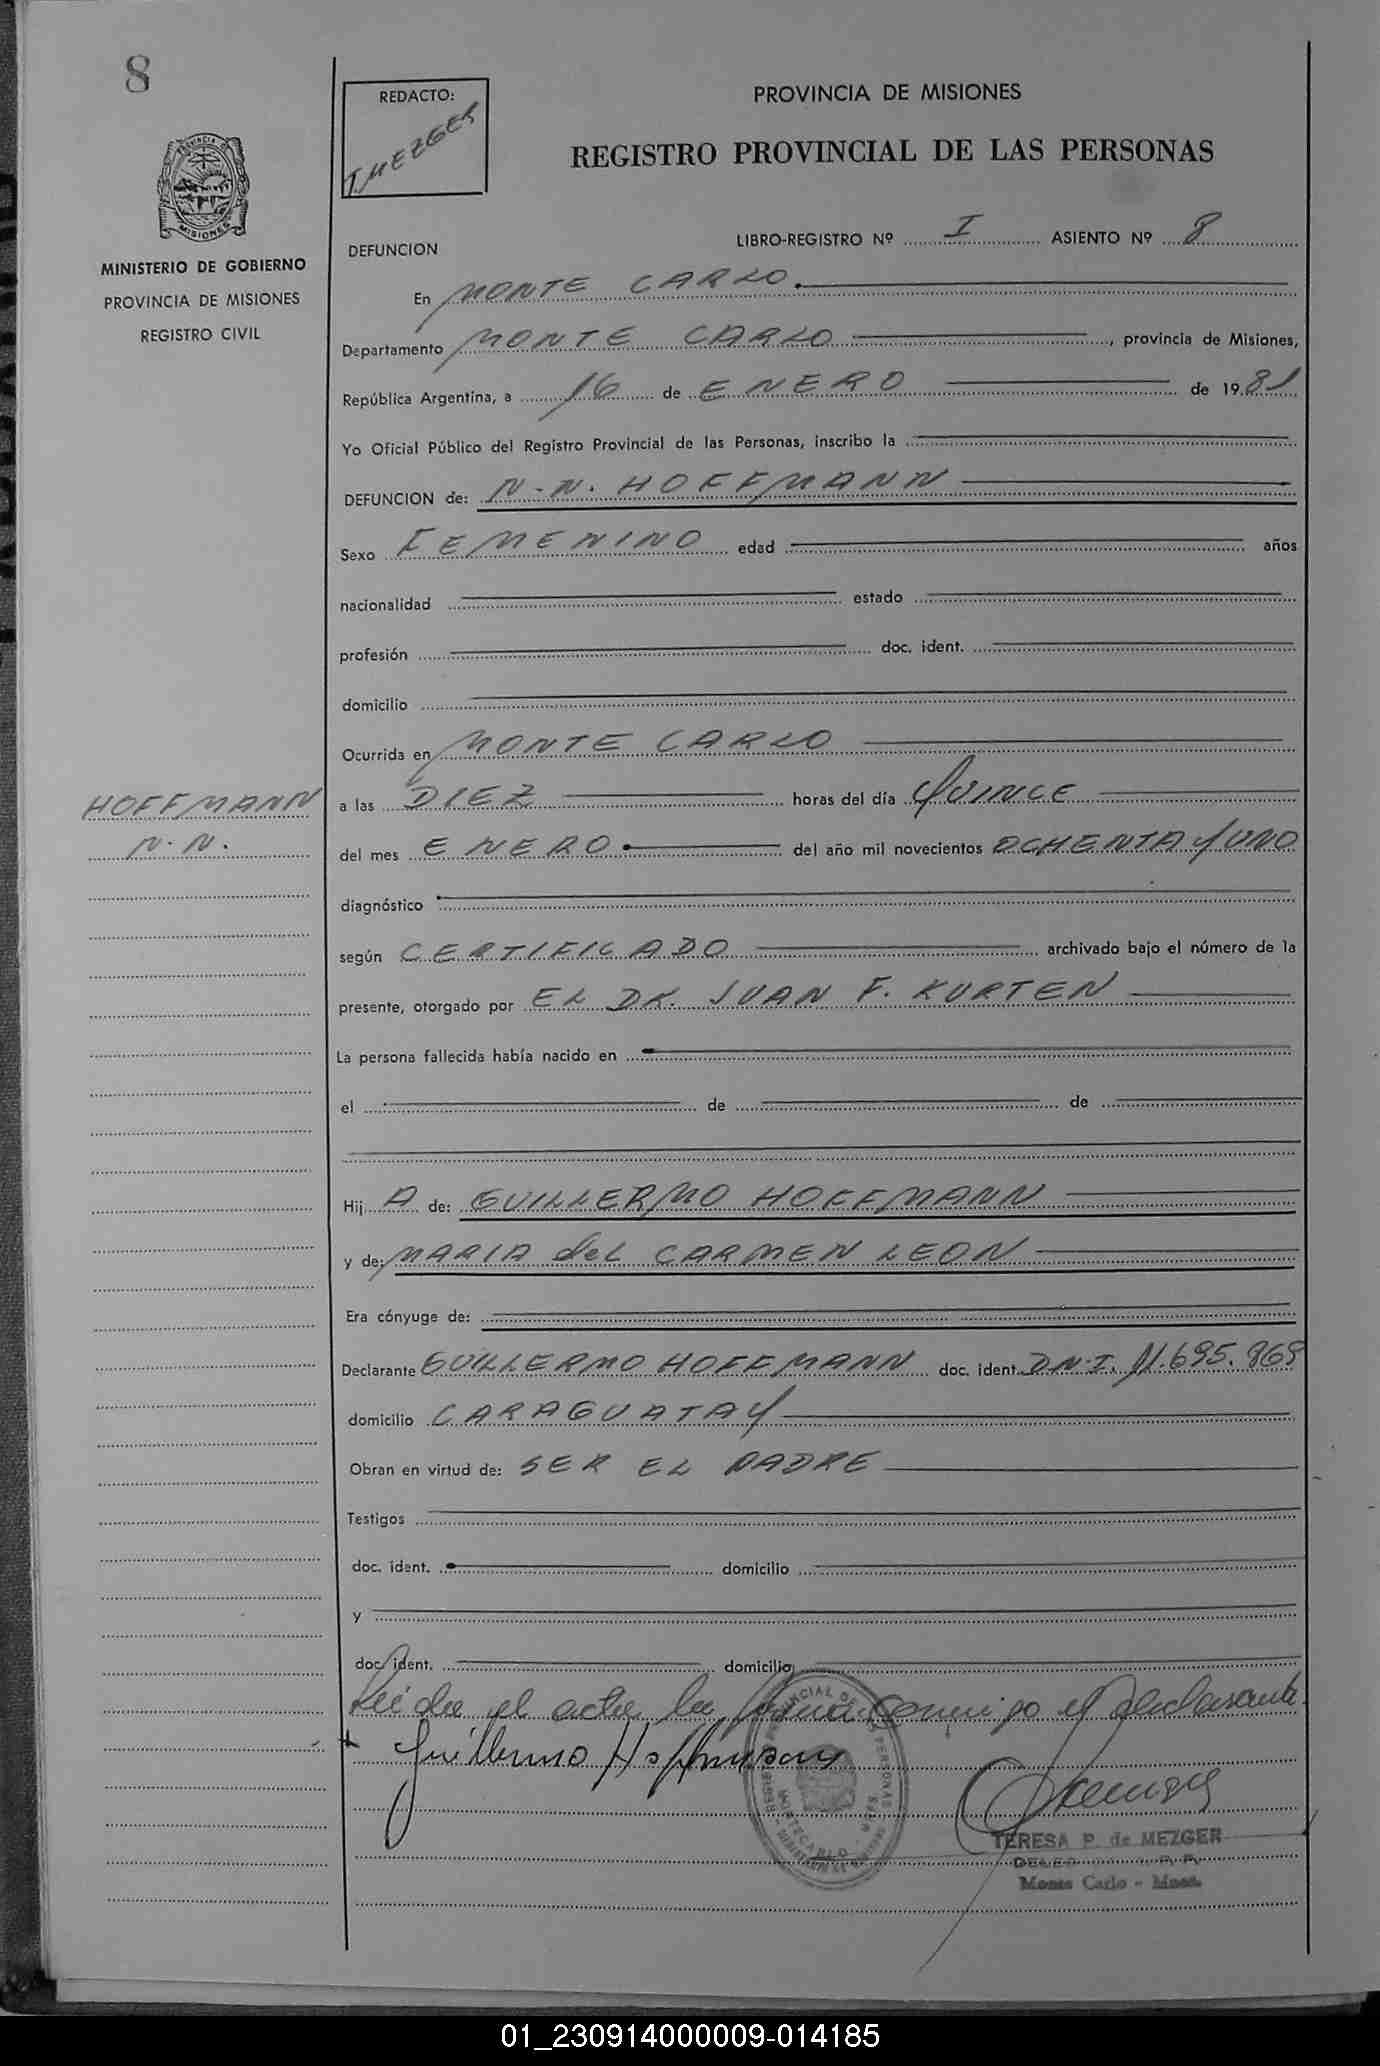 8
REDACTO:
T. MEZGER
PROVINCIA DE MISIONES
REGISTRO PROVINCIAL DE LAS PERSONAS
PROVINCIA DE
MISIONES
MINISTERIO DE GOBIERNO
PROVINCIA DE MISIONES
REGISTRO CIVIL
DEFUNCION
LIBRO-REGISTRO Nº I ASIENTO Nº 8
En MONTE CARLO.
Departamento MONTE CARLO, provincia de Misiones,
República Argentina, a 16 de ENERO de 1981
Yo Oficial Público del Registro Provincial de las Personas, inscribo la
DEFUNCION de: N.N. HOFFMANN
Sexo FEMENINO edad años
nacionalidad estado
profesión doc. ident.
domicilio
Ocurrida en MONTE CARLO
HOFFMANN
N.N.
a las DIEZ horas del día QUINCE
del mes ENERO del año mil novecientos OCHENTA Y UNO
diagnóstico
según CERTIFICADO archivado bajo el número de la
presente, otorgado por EL DR. JUAN F. KURTEN
La persona fallecida había nacido en
el de de
Hij A de: GUILLERMO HOFFMANN
y de: MARIA del CARMEN LEON
Era cónyuge de:
Declarante GUILLERMO HOFFMANN doc. ident. D.N.I. 11.695.869
domicilio CARAGUATAY
Obran en virtud de: SER EL PADRE
Testigos
doc. ident. domicilio
y
doc. ident. domicilio
Leida el acta la firma conmigo el declarante.
Guillermo Hoffmann
TERESA P. de MEZGER
Monte Carlo - Mnes.
01_230914000009-014185